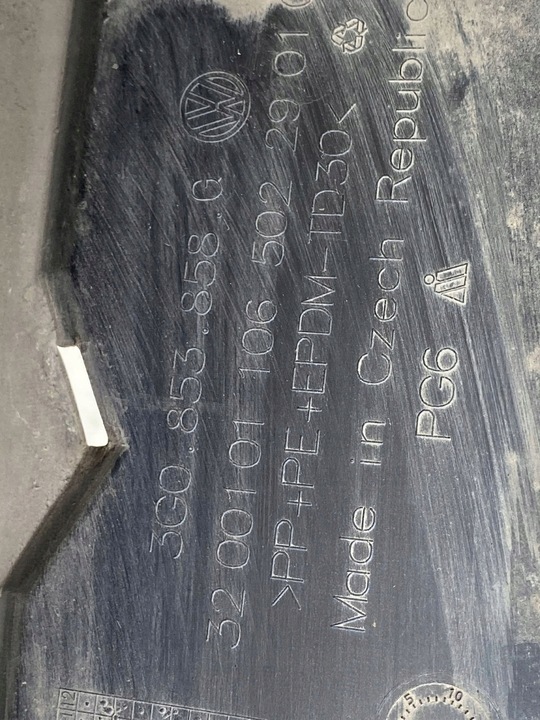 3G0.853.858.G
32 001 01 106 502 29 01
>PP+PE+EPDM-TD30<
Made in Czech Republic
PG6
12
5 10